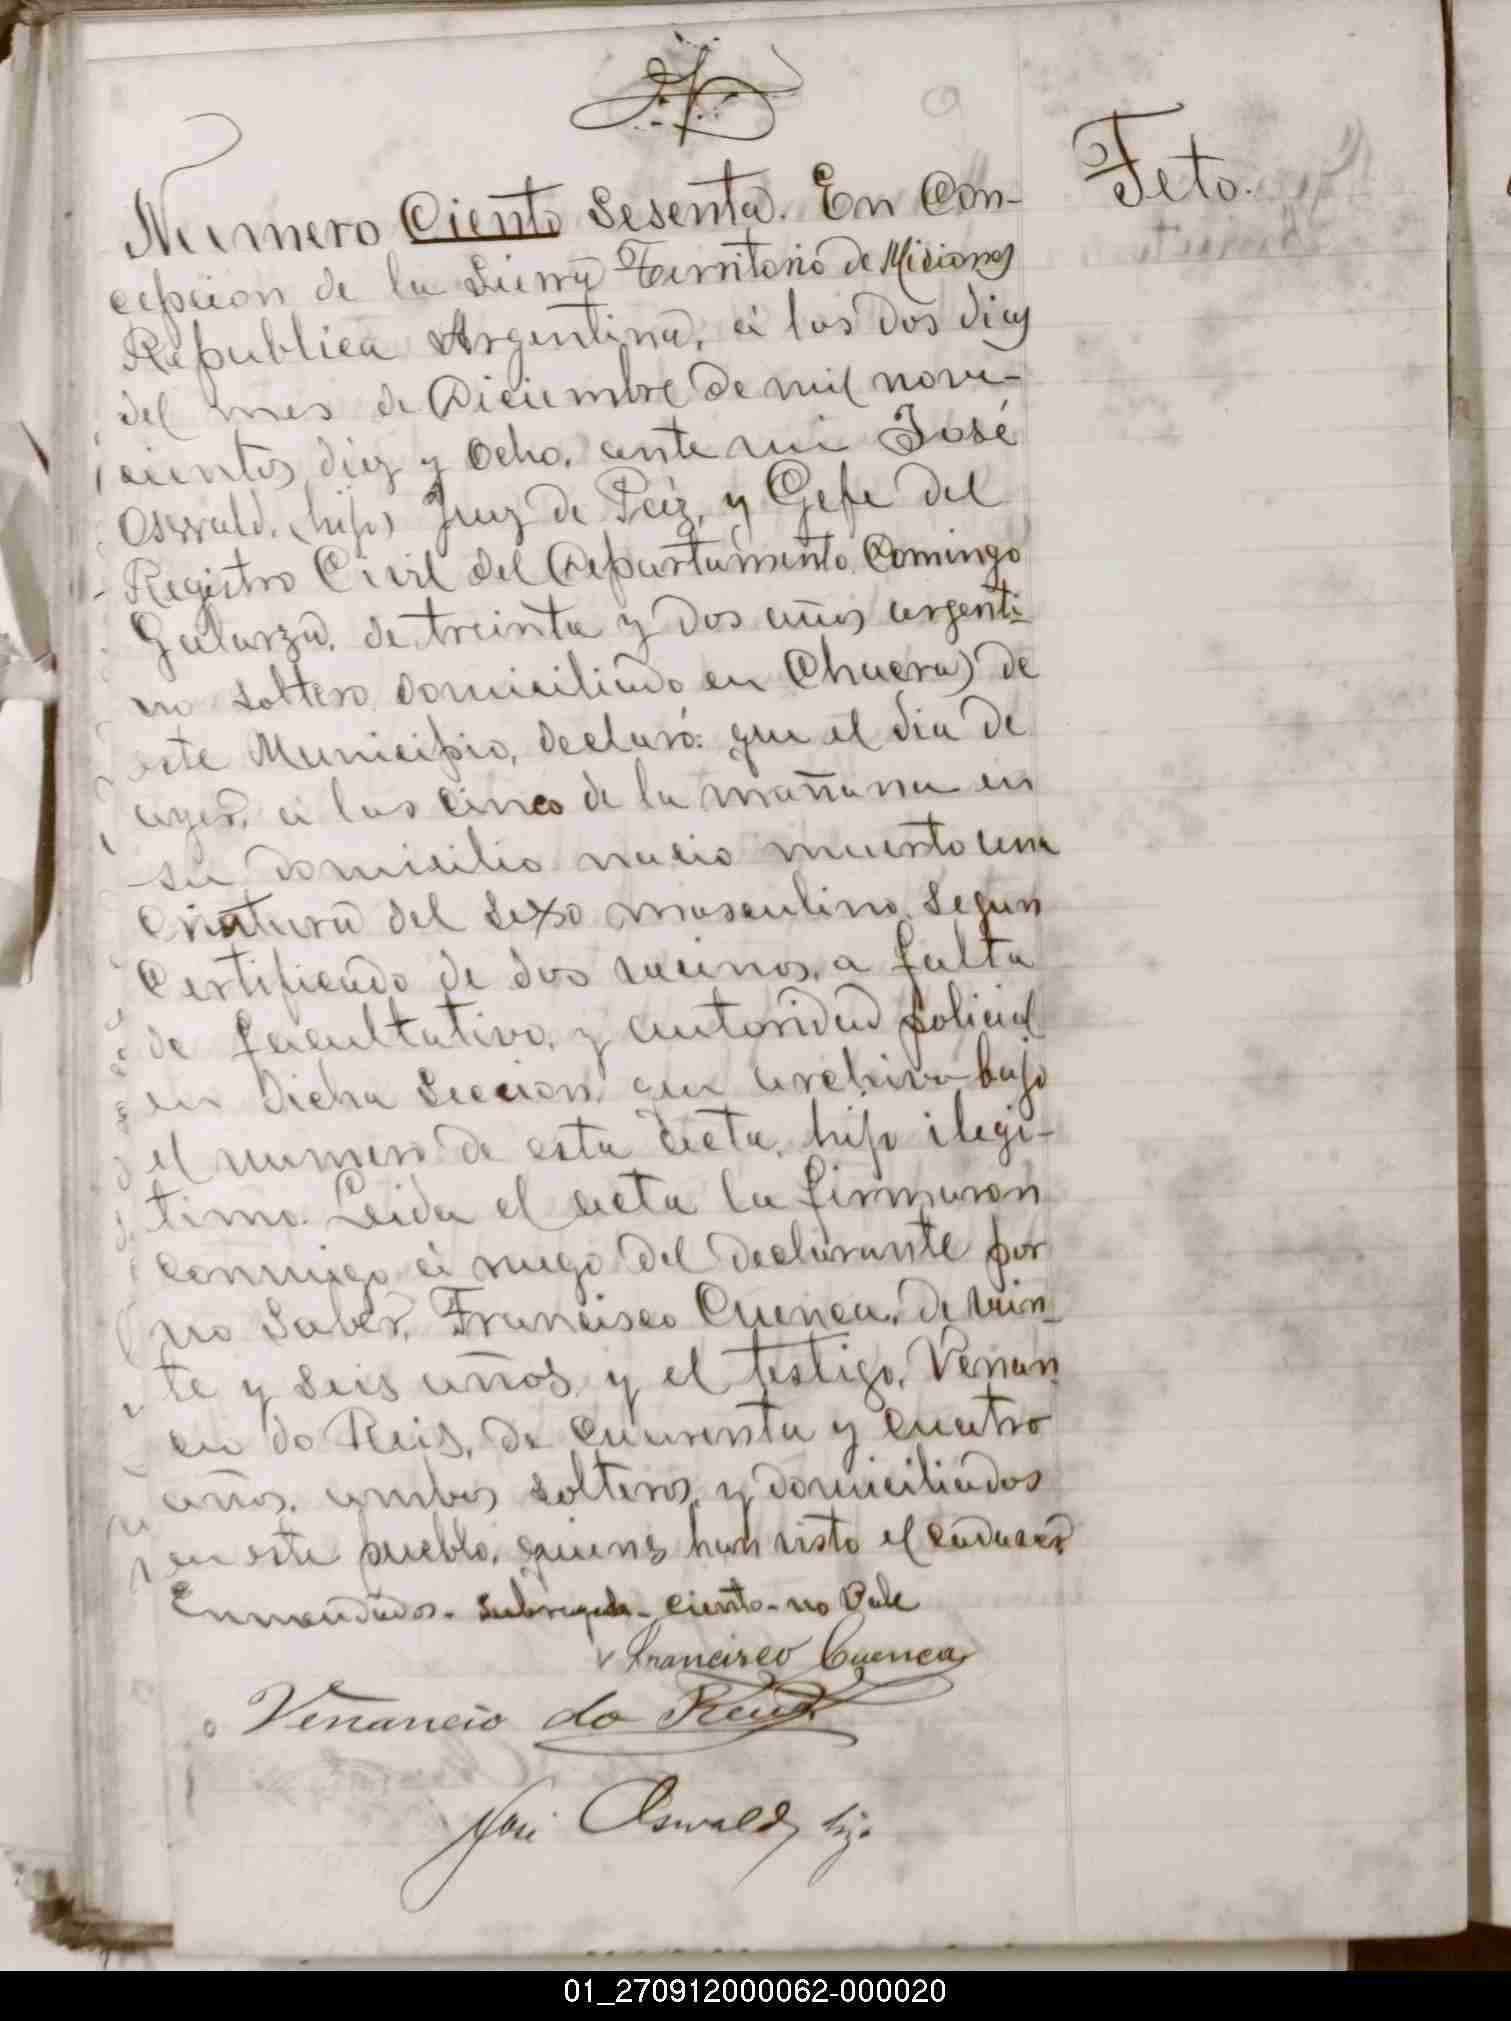 Feto.
Numero Ciento Sesenta. En Con-
cepcion de la Sierra Territorio de Misiones
Republica Argentina, á los dos dias
del mes de Diciembre de mil nove-
cientos diez y Ocho, ante mi José
Oswald, (hijo) Juez de Paz, y Gefe del
Registro Civil del Departamento, Domingo
Galarza, de treinta y dos años argenti-
no soltero domiciliado en Chacra) de
este Municipio, declaró: que el dia de
ayer, á las cinco de la mañana en
su domicilio nacio muerto una
Criatura del sexo masculino, segun
Certificado de dos vecinos, a falta
de facultativo, y autoridad policial
en dicha Seccion, que archivo bajo
el numero de esta acta, hijo ilegi-
timo. Leida el acta la firmaron
conmigo á ruego del declarante por
no saber, Francisco Cuenca, de vein-
te y seis años, y el testigo, Venan-
cio do Reis, de cuarenta y cuatro
años, ambos solteros, y domiciliados
en este pueblo, quienes han visto el cadaver
Enmendados - Subrayada - Ciento - no Vale
Francisco Cuenca
Venancio do Reis
José Oswald hijo
01_270912000062-000020